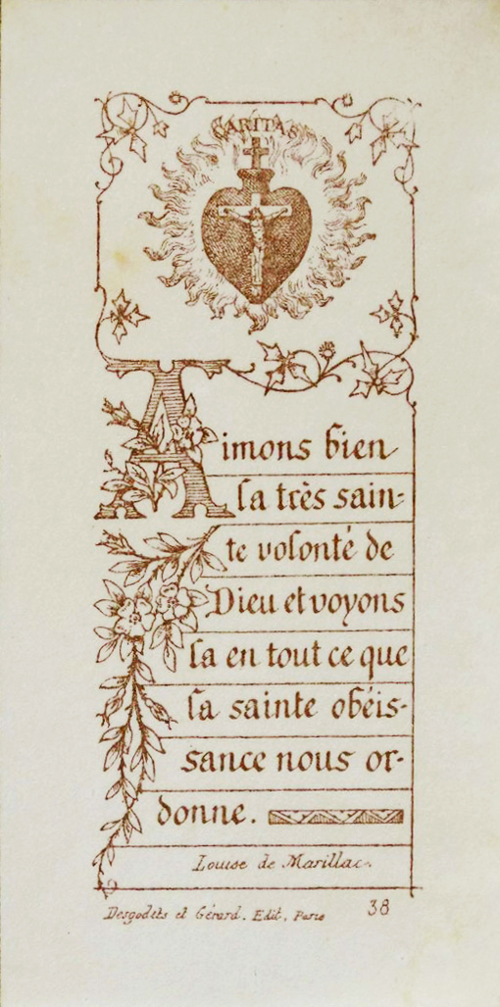 CARITAS
Aimons bien
la très sain-
te volonté de
Dieu et voyons
la en tout ce que
la sainte obéis-
sance nous or-
donne.
Louise de Marillac.
Desgodets et Gérard. Edit. Paris
38